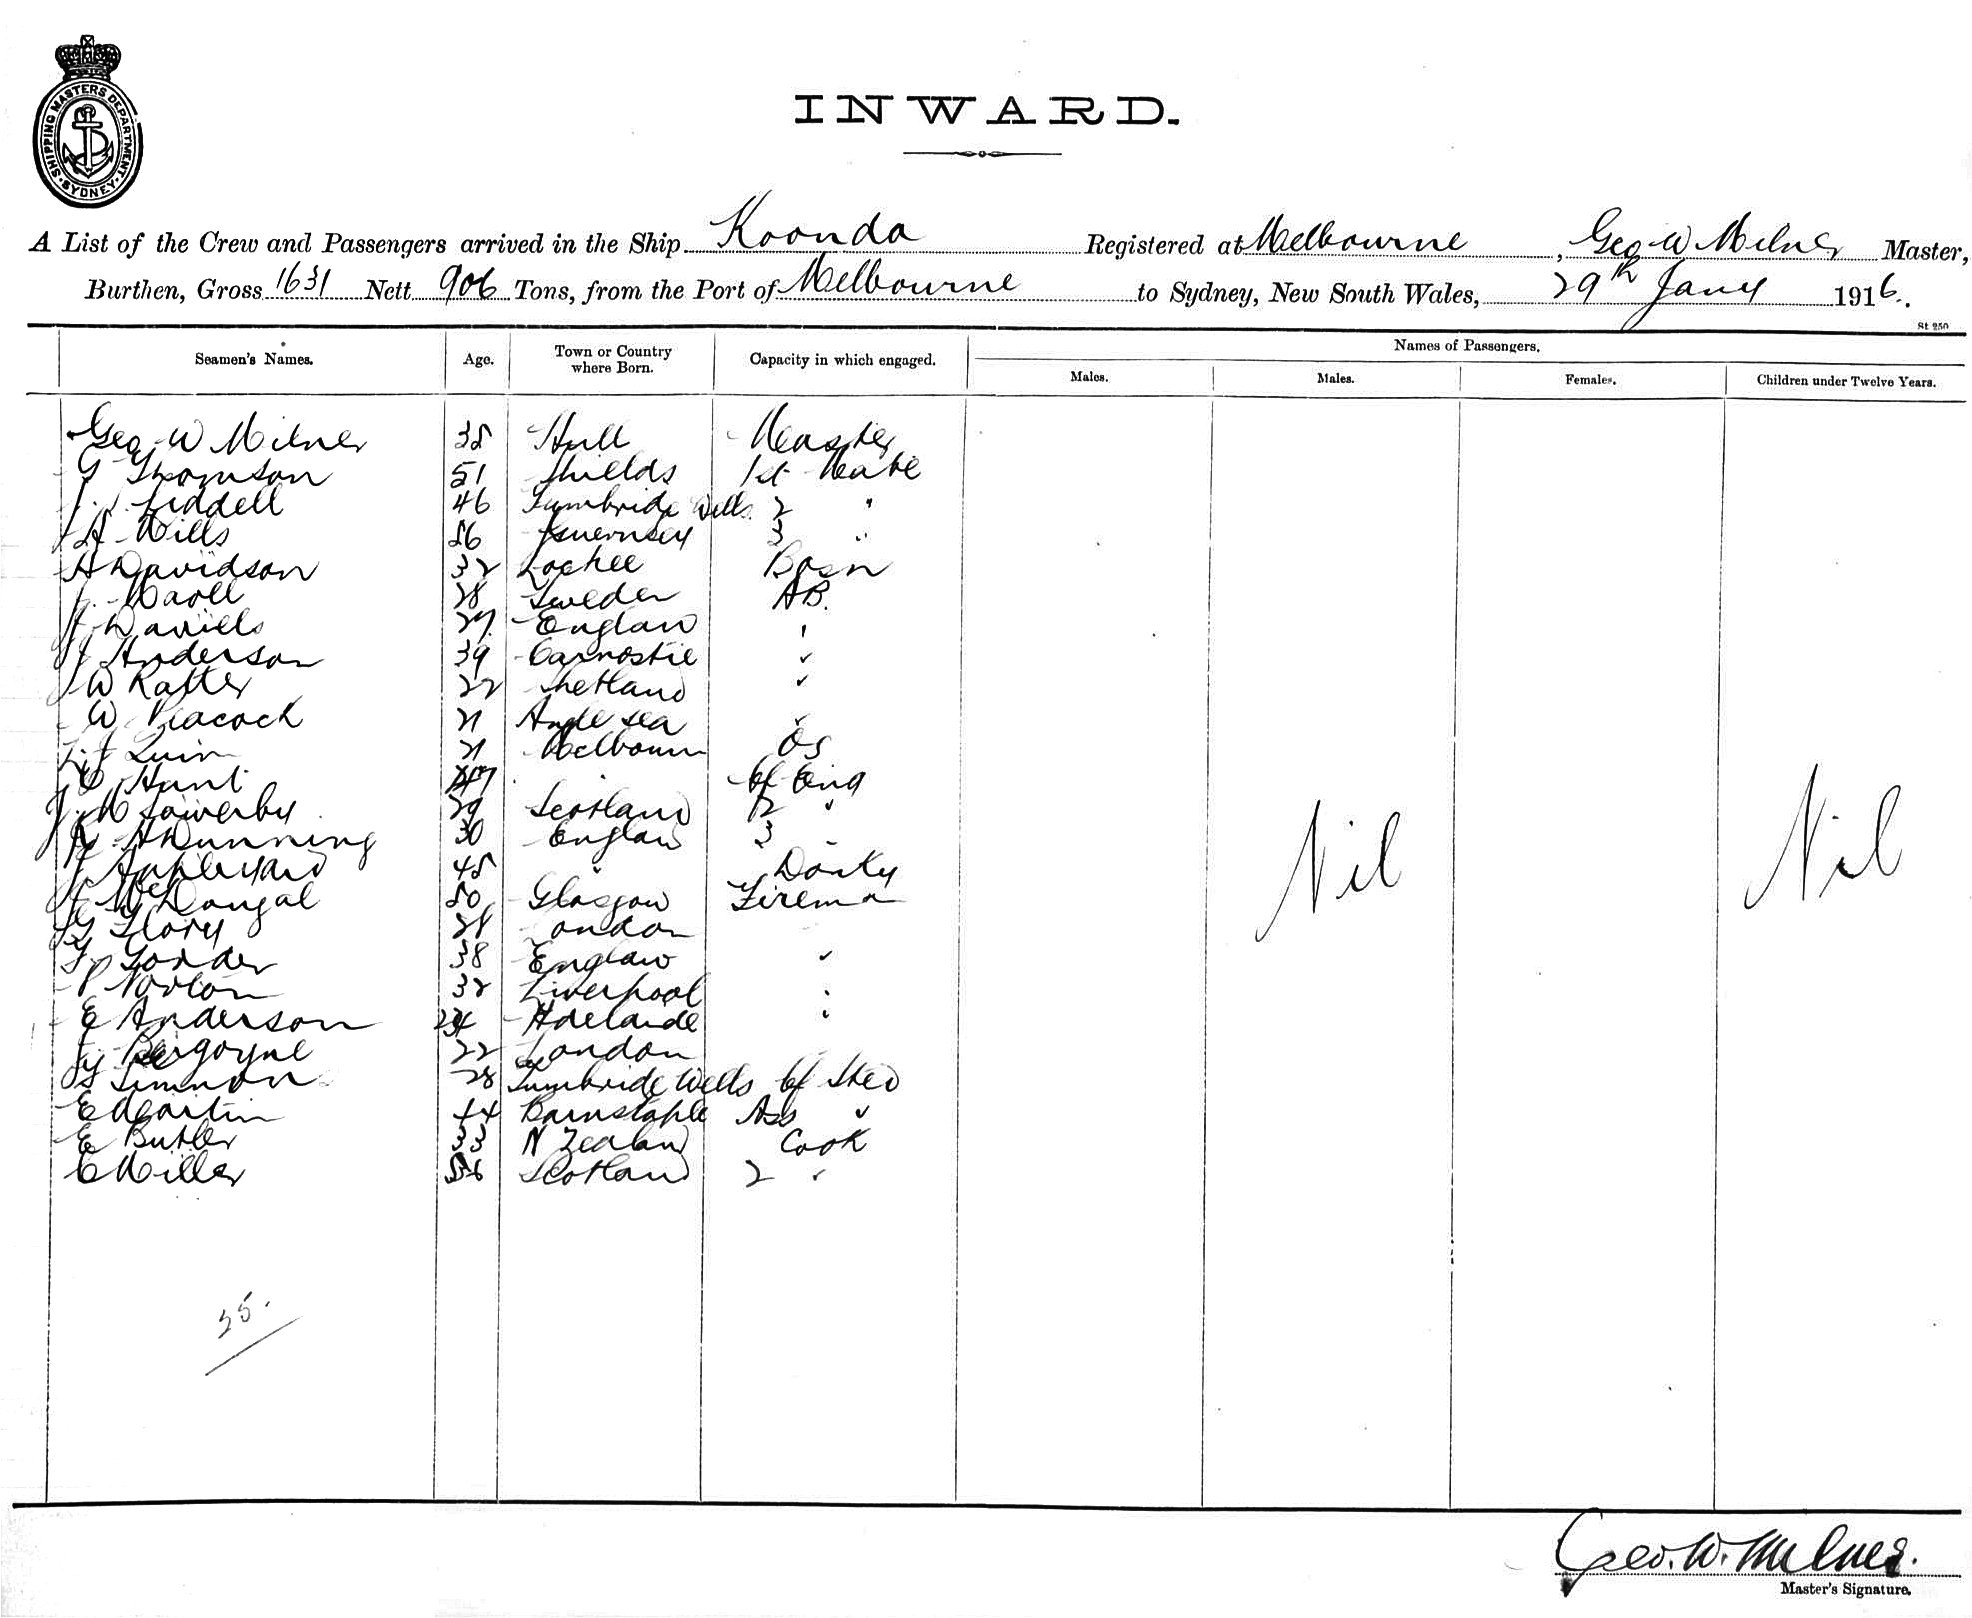 SHIPPING MASTERS DEPARTMENT · SYDNEY ·
INWARD.
A List of the Crew and Passengers arrived in the Ship Koonda Registered at Melbourne, Geo W Milner Master,
Burthen, Gross 1631 Nett 906 Tons, from the Port of Melbourne to Sydney, New South Wales, 29th Jany 1916.
St 250
Seamen's Names. Age. Town or Country where Born. Capacity in which engaged. Names of Passengers.
Males. Males. Females. Children under Twelve Years.
Geo W Milner 38 Hull Master
G Thomson 51 Shields 1st Mate
J. Liddell 46 Tumbridge Wells 2 "
A Wills 56 Guernsey 3 "
A Davidson 32 Lochee Bosn
J. 28 Sweden AB.
J Daniels 27 England "
J Anderson 39 Carnostie "
W Ratter 22 Shetland "
W Peacock 21 Anglesea "
Quin 21 Melbourn OS
C Hunt 47 Cf Eng
J. W Sowerby 29 Scotland 2 "
A Dunning 30 England 3 "
J Appleyard 45 " Donky
McDougal 50 Glasgow Fireman
G Glory 28 London
38 England "
P Norton 32 Liverpool "
E Anderson 24 Adelaide "
J Burgoyne 22 London
S Simmon 28 Tumbridge Wells Cf Sted
E Martin 44 Barnstaple Ass "
E Butler 33 N Zealand Cook
C Miller 56 Scotland 2 "
Nil Nil
25.
Geo. W. Milner.
Master's Signature.